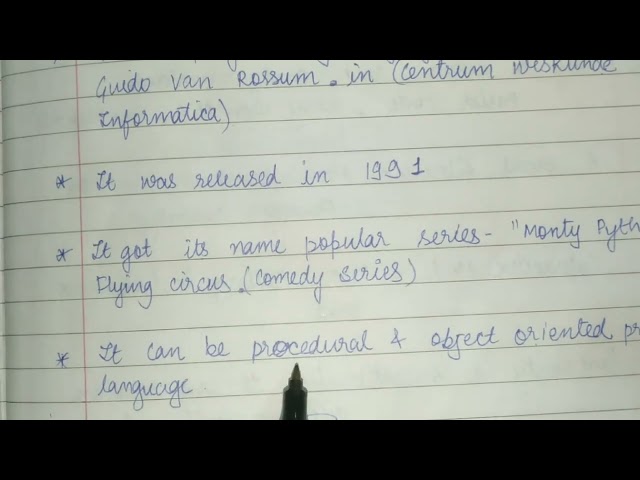 Guido Van Rossum. in (Centrum Weskunde
Informatica)
* It was released in 1991
* It got its name popular series- "Monty Pyth
Flying circus. (Comedy series)
* It can be procedural & object oriented pr
language